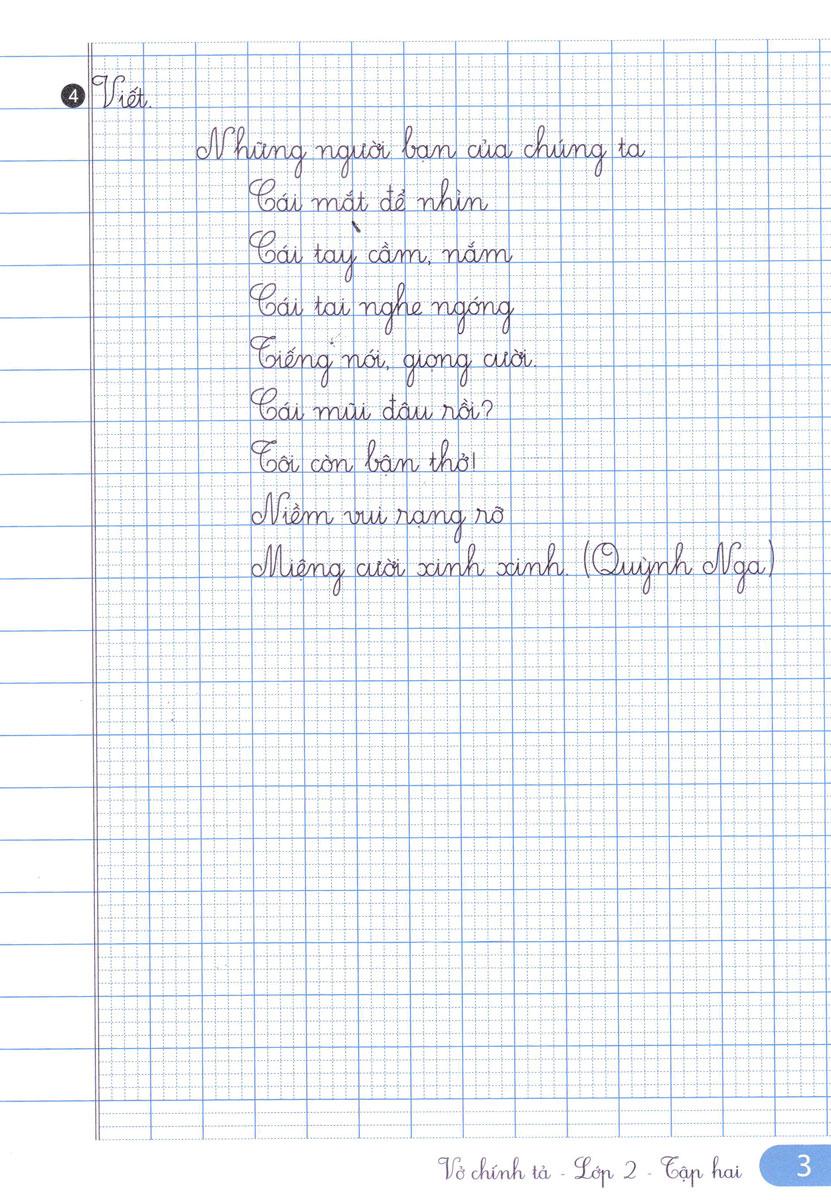 4 Viết.
Những người bạn của chúng ta
Cái mắt để nhìn
Cái tay cầm, nắm
Cái tai nghe ngóng
Tiếng nói, giọng cười.
Cái mũi đâu rồi?
Tôi còn bận thở!
Niềm vui rạng rỡ
Miệng cười xinh xinh. (Quỳnh Nga)
Vở chính tả - Lớp 2 - Tập hai 3